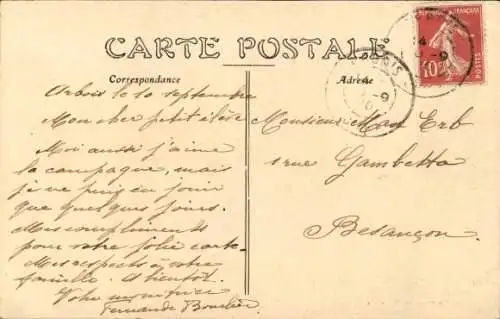 CARTE POSTALE
Correspondance
Adresse
Arbois le 10 septembre
Mon cher petit élève
Moi aussi j'aime
la campagne, mais
je ne puis en jouir
que quelques jours.
Mes compliments
pour votre jolie carte.
Mes respects à votre
famille. A bientôt.
Votre monitrice
Fernande
Monsieur Max Erb
1 rue Gambetta
Besançon
REPUBLIQUE FRANÇAISE
10